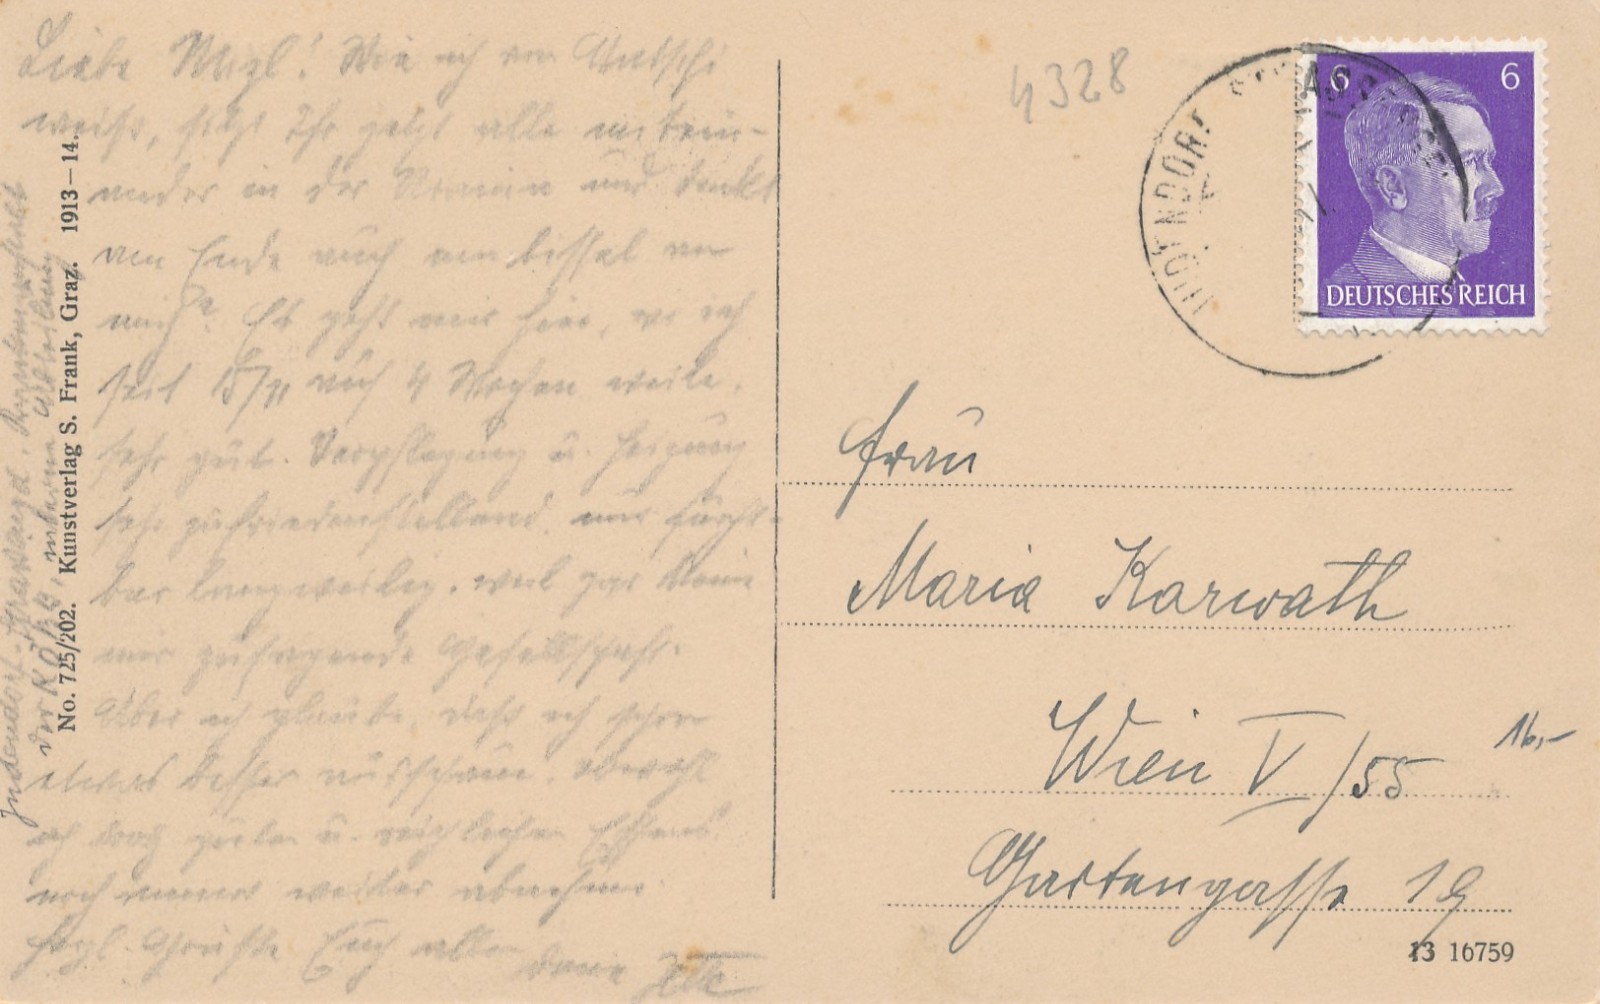 Liebe Mizl! Wie ich von
weiß, seht Ihr jetzt alle mitein-
ander in der und denkt
am Ende auch ein bissel an
mich? Es geht mir hier, wo ich
seit 18/11 auf 4 Wochen weile,
sehr gut. Verpflegung u. Heizung
sehr zufriedenstellend, nur furcht-
bar langweilig, weil gar keine
mir zusagende Gesellschaft.
Aber ich glaube, daß ich schon
etwas besser ausschaue, obwohl
ich trotz guten u. reichlichen Essens
noch immer weiter abnehme.
Herzl. Grüße Euch allen
Deine
Judendorf-Straßengel,
der K.Ö.B.,
No. 725/202. Kunstverlag S. Frank, Graz. 1913—14.
4328
JUDENDORF
6 6
DEUTSCHES REICH
Frau
Maria Karwath
Wien V/55
16,-
Gartengasse 19
13 16759